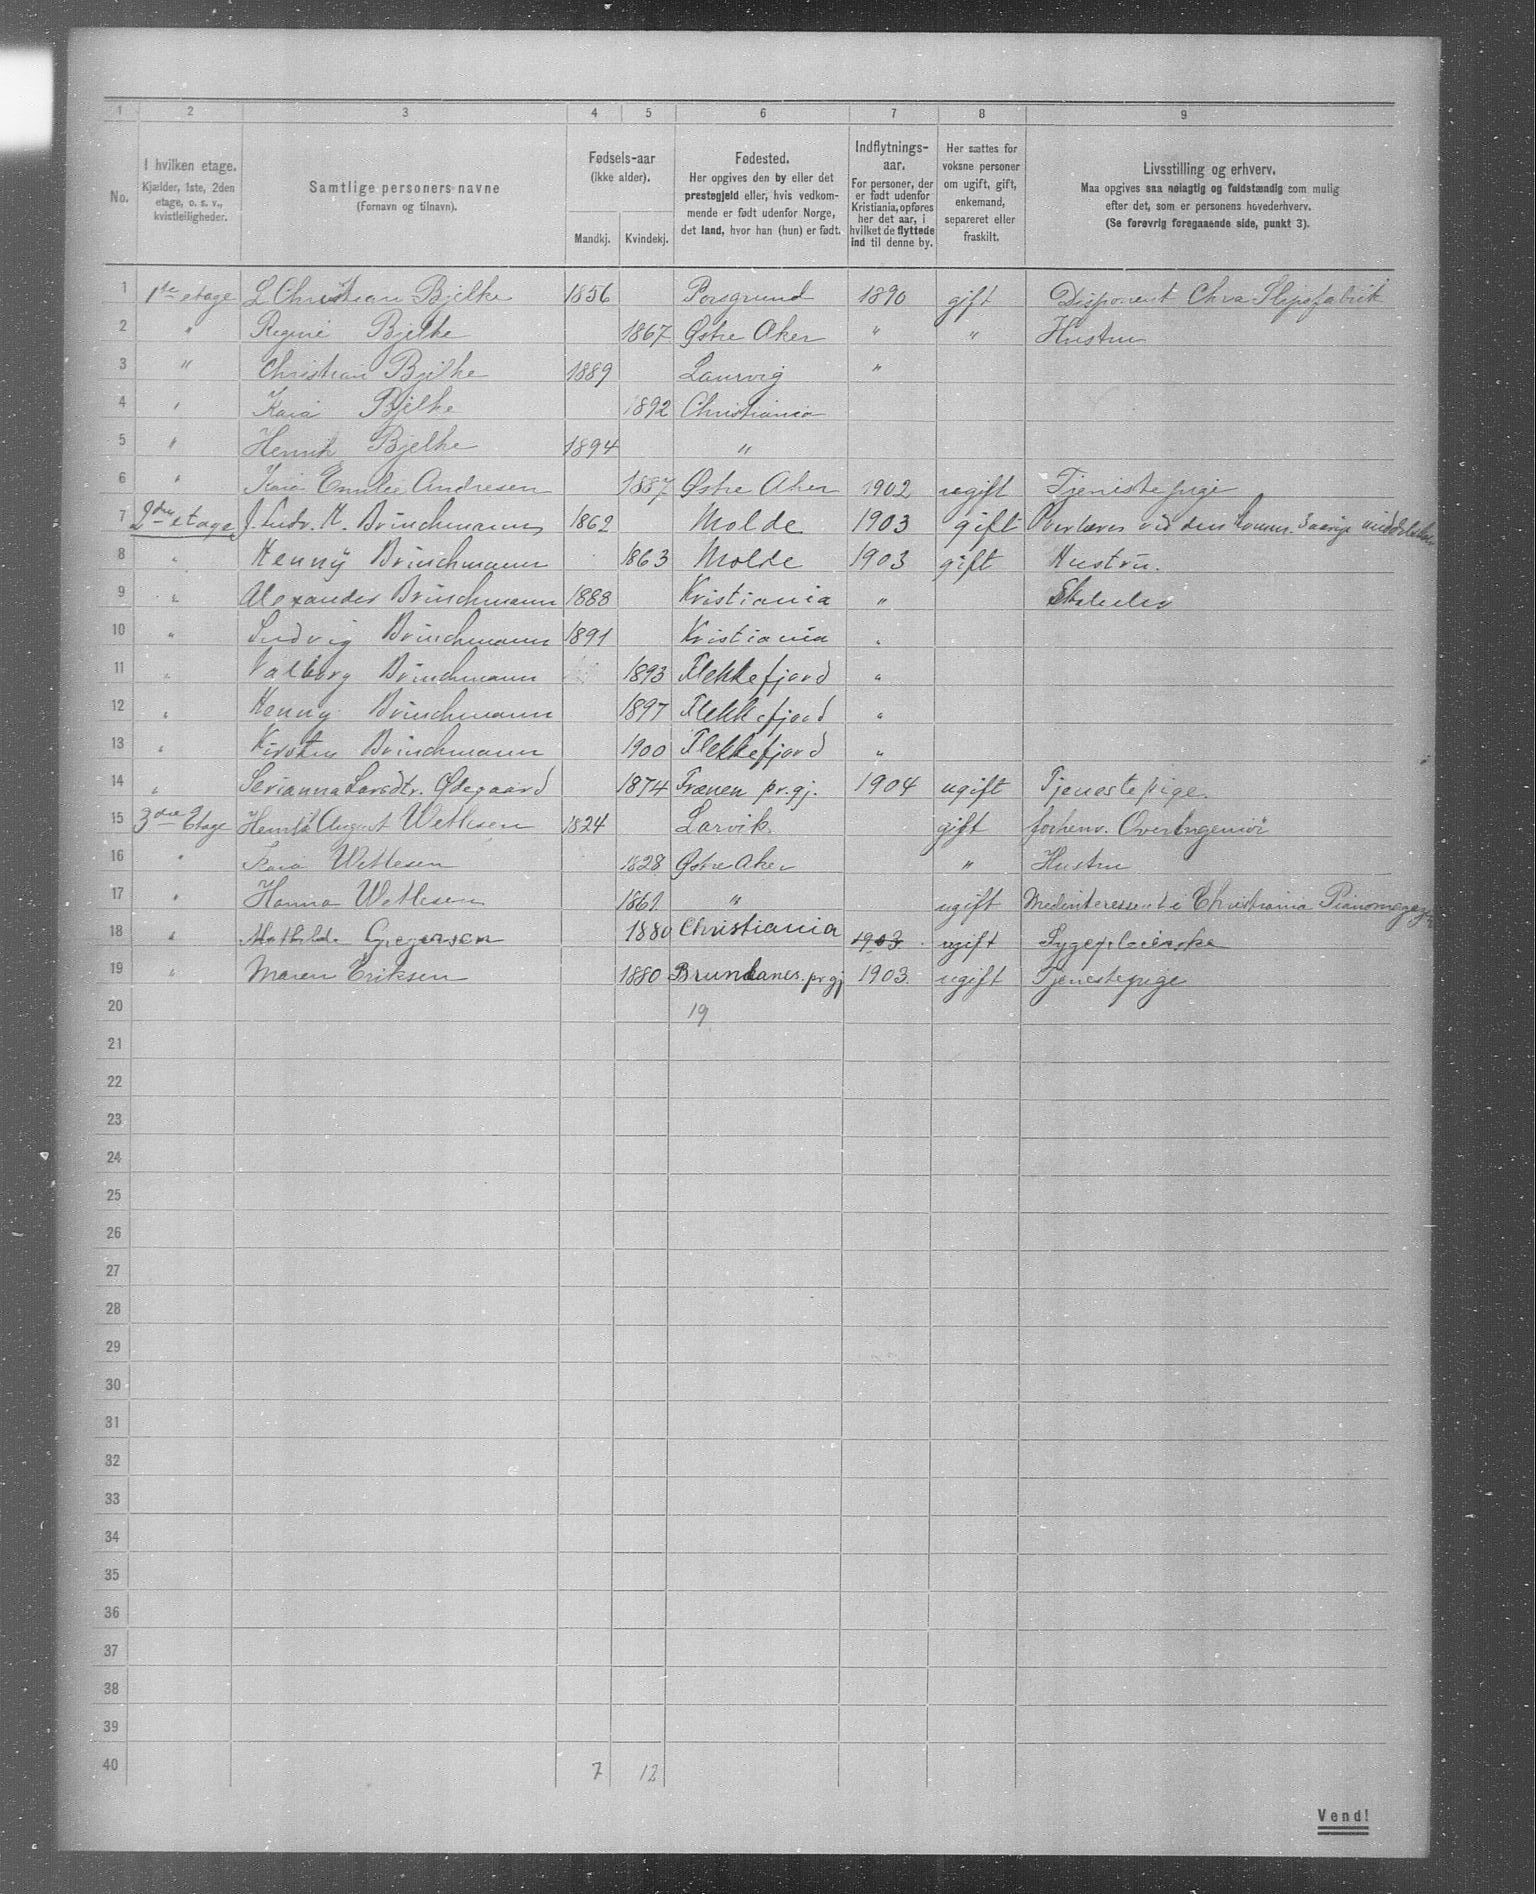 1 2 3 4 5 6 7 8 9
No.
I hvilken etage.
Kjælder, 1ste, 2den
etage, o. s. v.,
kvistleiligheder.
Samtlige personers navne
(Fornavn og tilnavn).
Fødsels-aar
(ikke alder).
Mandkj. Kvindekj.
Fødested.
Her opgives den by eller det
prestegjeld eller, hvis vedkom-
mende er født udenfor Norge,
det land, hvor han (hun) er født.
Indflytnings-
aar.
For personer, der
er født udenfor
Kristiania, opføres
her det aar, i
hvilket de flyttede
ind til denne by.
Her sættes for
voksne personer
om ugift, gift,
enkemand,
separeret eller
fraskilt.
Livsstilling og erhverv.
Maa opgives saa nøiagtig og fuldstændig som mulig
efter det, som er personens hovederhverv.
(Se forøvrig foregaaende side, punkt 3).
1 1ste etage L Christian Bjelke 1856 Porsgrund 1890 gift Disponent Chra Slipsfabrik
2 " Regine Bjelke 1867 Østre Aker " " Hustru
3 " Christian Bjelke 1889 Laurvig "
4 " Kaia Bjelke 1892 Christiania
5 " Henrik Bjelke 1894 "
6 " Kaia Emilie Andresen 1887 Østre Aker 1902 ugift Tjenistepige
7 2den etage J. Ludv. H. Brinchmann 1862 Molde 1903 gift Overlærer ved den komm. 3 aarige
8 " Henny Brinchmann 1863 Molde 1903 gift Hustru.
9 " Alexander Brinchmann 1888 Kristiania "
10 " Ludvig Brinchmann 1891 Kristiania "
11 " Valborg Brinchmann 1893 Flekkefjord "
12 " Henny Brinchmann 1897 Flekkefjord "
13 " Kirsten Brinchmann 1900 Flekkefjord "
14 " Serianna Larsdtr. Ødegaard 1874 Frænen pr.gj. 1904 ugift Tjenestepige.
15 3die Etage Henrik August Wetlesen 1824 Larvik. gift forhenv. Overingeniør
16 " Kaia Wetlesen 1828 Østre Aker " Hustru
17 " Hanna Wetlesen 1861 " ugift Medinteressent i Christiania Pianomagazin
18 " Mathilde Gregersen 1880 Christiania 1903 ugift Sygepleierske
19 " Maren Eriksen 1880 Brunlanes. pr gj 1903. ugift Tjenestepige
20 19
21
22
23
24
25
26
27
28
29
30
31
32
33
34
35
36
37
38
39
40 7 12
Vend!